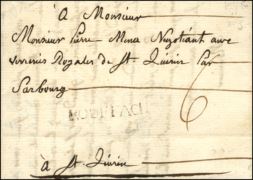 A Monsieur
Monsieur Pierre Mena Negotiant aux
verreries Royales de St Quirin Par
Sarbourg
6
a St Quirin